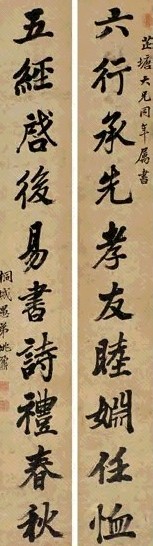 芷塘大兄同年屬書
六行承先孝友睦婣任恤
五經啓後易書詩禮春秋
桐城愚弟姚鼐